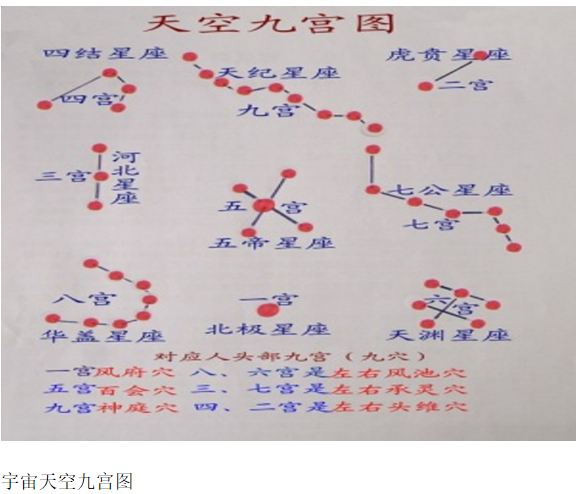 天空九宫图
四结星座
虎贲星座
天纪星座
四宫
二宫
九宫
三宫
河北星座
七公星座
五宫
七宫
五帝星座
八宫
一宫
六宫
华盖星座
北极星座
天渊星座
对应人头部九宫（九穴）
一宫风府穴 八、六宫是左右风池穴
五宫百会穴 三、七宫是左右承灵穴
九宫神庭穴 四、二宫是左右头维穴
宇宙天空九宫图